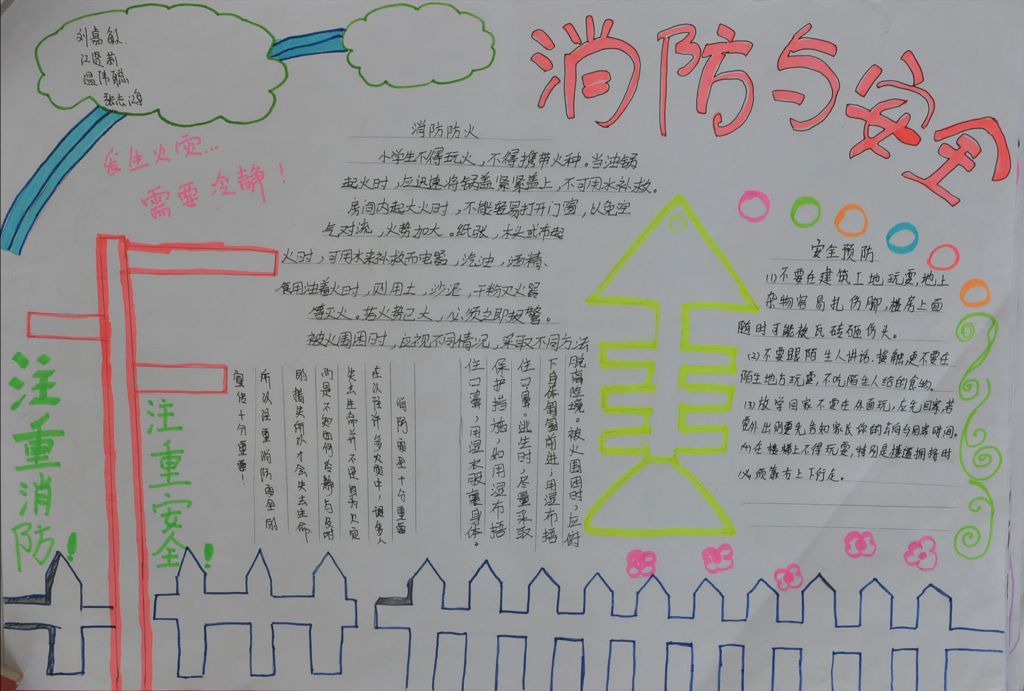 消防与安全
刘嘉敏
江贤莉
温伟聪
张志鸿
发生火灾...
需要冷静！
消防防火
小学生不得玩火，不得携带火种。当油锅
起火时，应迅速将锅盖紧紧盖上，不可用水补救。
房间内起大火时，不能轻易打开门窗，以免空
气对流，火势加大。纸张，木头或布起
火时，可用水来补救而电器，汽油，酒精、
食用油着火时，则用土，沙泥，干粉灭火器
等灭火。若火势已大，必须立即报警。
被火围困时，应视不同情况，采取不同方法
脱离险境。被火围困时，应俯
下身体匍匐前进，用湿布捂
住口鼻。逃生时，尽量采取
保护措施，如用湿布捂
住口鼻，用湿衣服裹身体。
消防安全十分重要
在以往许多火灾中，很多人
失去生命并不是因为火灾
而是不知如何冷静与及时
的措失所以才会失去生命
所以注重消防安全的
宣传十分重要！
注重消防！
注重安全！
安全预防
(1)不要在建筑工地玩耍，地上
杂物容易扎伤脚，楼房上面
随时可能被瓦砖砸伤头。
(2)不要跟陌生人讲话、接触，更不要在
陌生地占玩耍，不吃陌生人给的食物。
(3)放学回家不要在外面玩，应先回家，若
要外出则要先告知家长你的去向与回家时间。
(4)在楼梯上不得玩耍，特别是楼道拥挤时
必须靠右上下行走。